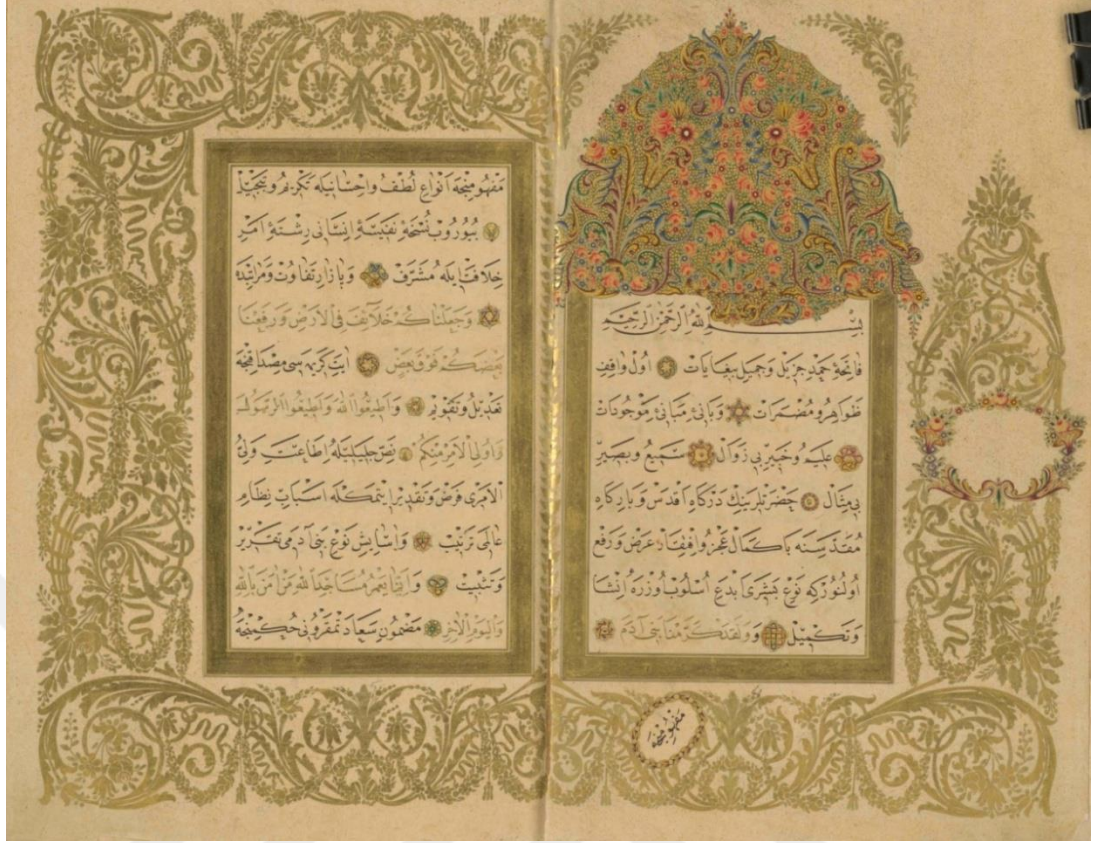 بسم الله الرحمن الرحيم
فاتحۀ حمد جزیل و جمیل بیغایات اول واقف
ظواهر و مضمرات و بانئ مبانئ موجودات
علیم و خبیر بی زوال سمیع و بصیر
بی مثال حضرتلرینك درکاه اقدس و بارکاه
مقدسنه با کمال عجز و افتقار عرض و رفع
اولنورکه نوع بشری ابدع اسلوب اوزره انشا
و تکمیل و ولقد کرمنا بنی آدم
مفهومنجه
مفهومنجه انواع لطف و احسانیله تکریم و تبجیل
بیوروب نسخۀ نفیسۀ انسانی رشتۀ امر
خلافتله مشرف و بازار تفاوت و مراتبده
وجعلناکم خلائف فی الارض ورفعنا
بعضکم فوق بعض ایت کریمه سی مصداقنجه
تعدیل و تقویم واطیعوا الله واطیعوا الرسول
واولی الامر منکم نص جلیلیله اطاعت ولی
الامری فرض و تقدیر ایتمکله اسباب نظام
عالمی ترتیب و اسایش نوع بنی آدمی تقریر
و تثبیت و انما یعمر مساجد الله من امن بالله
والیوم الاخر مضمون سعادتمقرونی حکمنجه